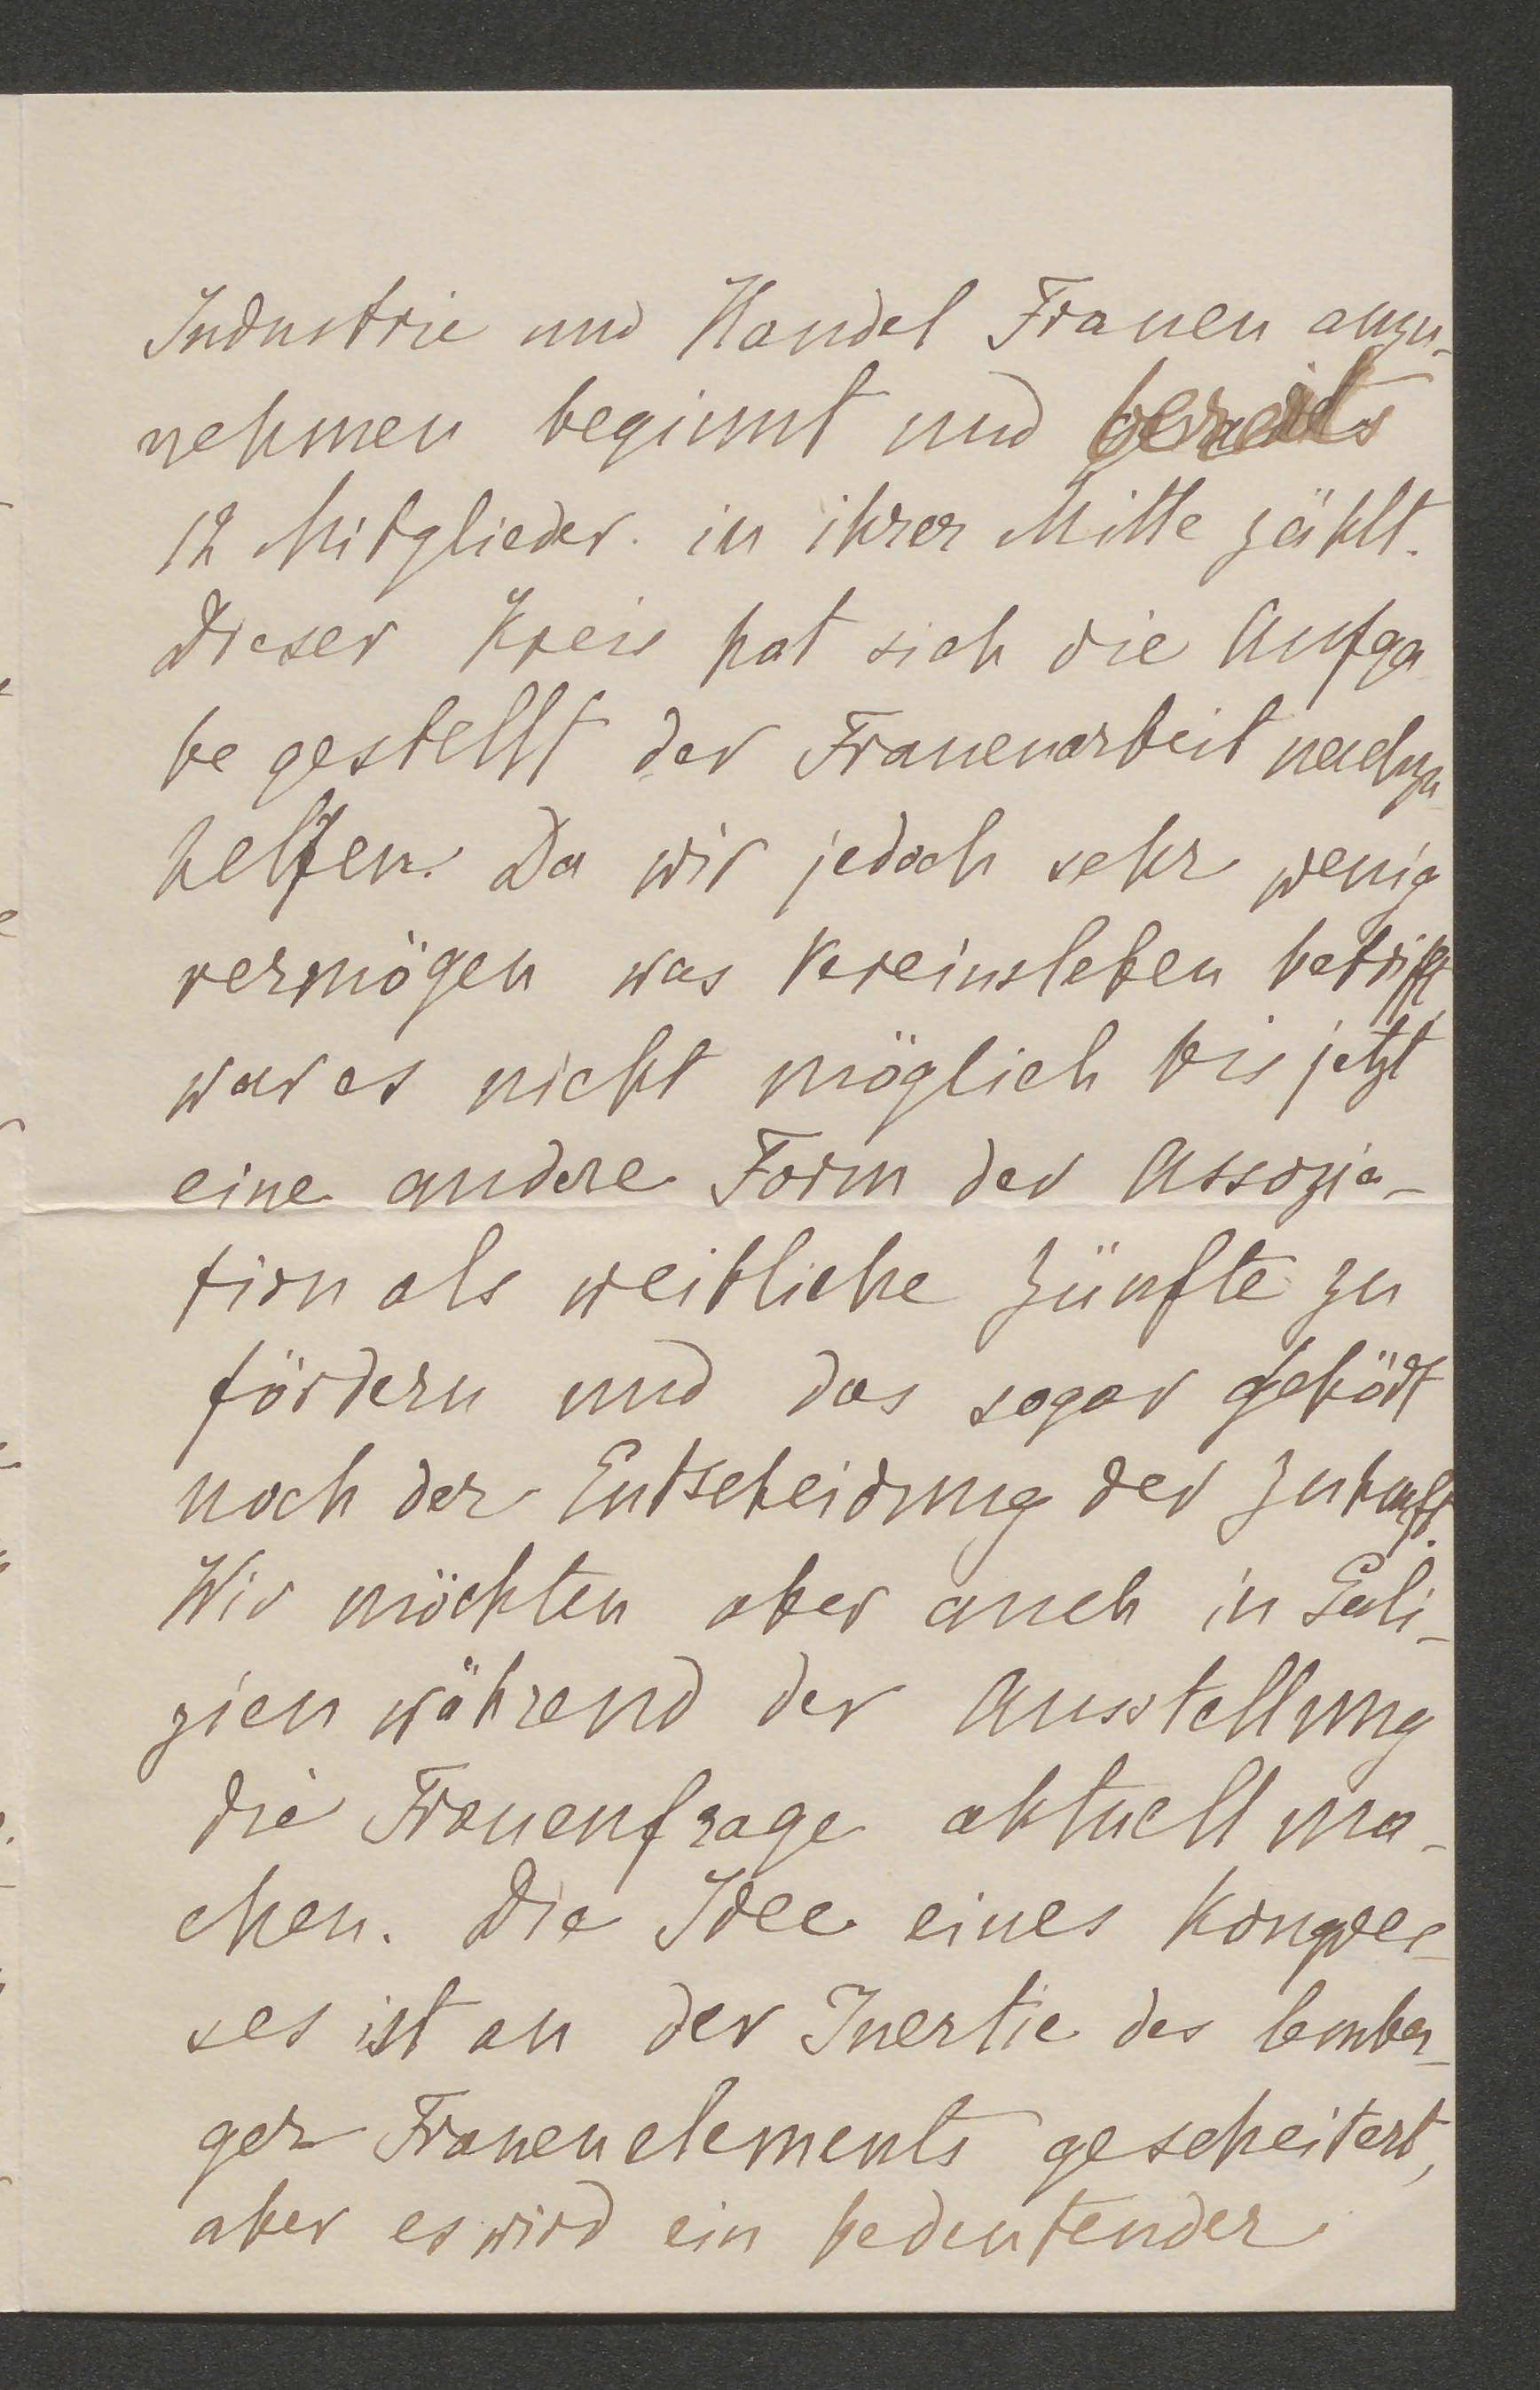 Industrie und Handel Frauen anzu-
nehmen beginnt und bereits
12 Mitglieder in ihrer Mitte zählt.
Dieser Kreis hat sich die Aufga
be gestellt der Frauenarbeit nachzu
helfen. Da wir jedoch sehr wenig
vermögen was Vereinsleben betrifft,
war es nicht möglich bis jetzt
eine andere Form der Assozia-
tion als weibliche Zünfte zu
fördern und das sogar gehört
noch der Entscheidung der Zukunft.
Wir möchten aber auch in Gali-
zien während der Ausstellung
die Frauenfrage aktuell ma-
chen. Die Idee eines Kongres-
ses ist an der Inertie des lember-
ger Frauenelements gescheitert,
aber es wird ein bedeutender